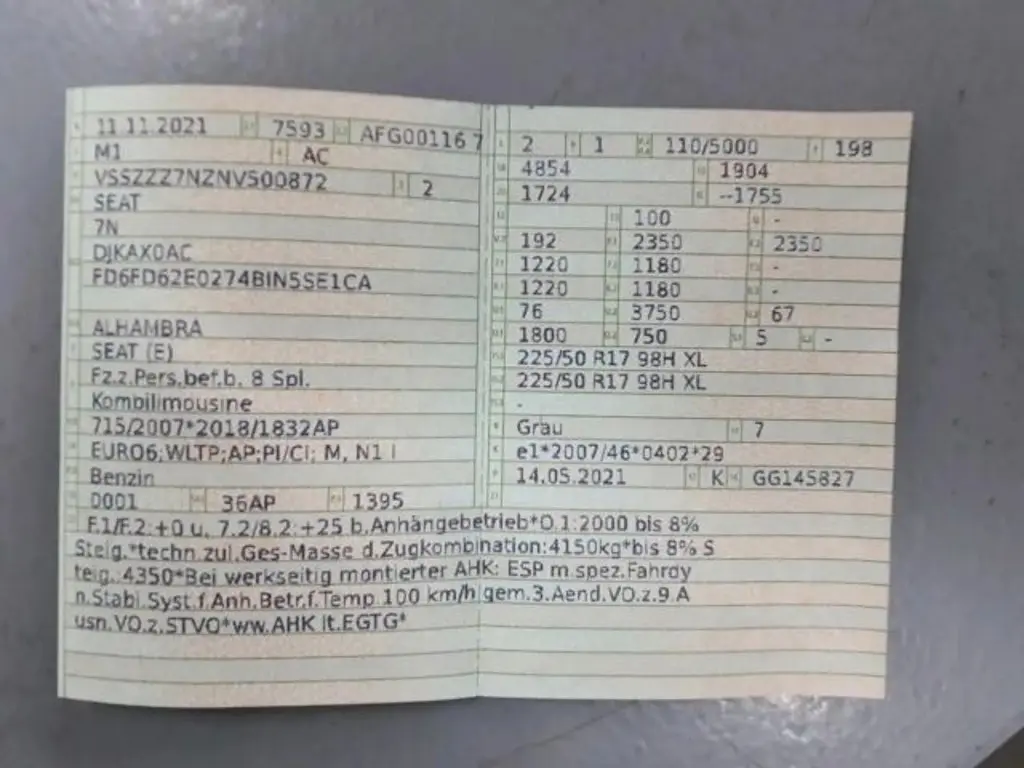 11 11.2021 7593 AFG00116 7
M1 AC
VSSZZZ7NZNV500872 2
SEAT
7N
DJKAX0AC
FD6FD62E0274BIN5SE1CA
ALHAMBRA
SEAT (E)
Fz.z.Pers.bef.b. 8 Spl.
Kombilimousine
715/2007*2018/1832AP
EURO6;WLTP;AP;PI/CI; M, N1 I
Benzin
0001 36AP 1395
2 1 110/5000 198
4854 1904
1724 --1755
100 -
192 2350 2350
1220 1180 -
1220 1180 -
76 3750 67
1800 750 5 -
225/50 R17 98H XL
225/50 R17 98H XL
-
Grau 7
e1*2007/46*0402*29
14.05.2021 K GG145827
F.1/F.2:+0 u. 7.2/8.2:+25 b.Anhängebetrieb*O.1:2000 bis 8%
Steig.*techn.zul.Ges-Masse d.Zugkombination:4150kg*bis 8% S
teig.:4350*Bei werkseitig montierter AHK: ESP m.spez.Fahrdy
n.Stabi.Syst.f.Anh.Betr.f.Temp 100 km/h gem.3.Aend.VO.z.9.A
usn.VO.z.STVO*ww.AHK lt.EGTG*